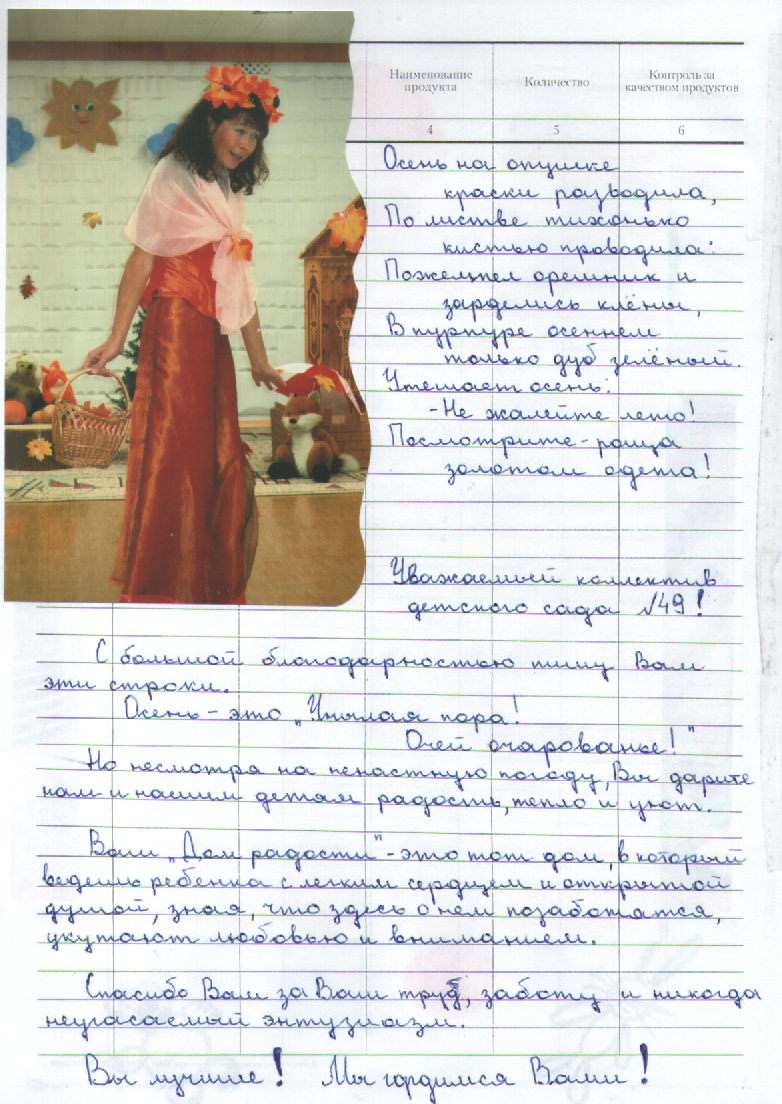 Наименование
продукта
Количество
Контроль за
качеством продуктов
4
5
6
Осень на опушке
краски разводила,
По листве тихонько
кистью проводила:
Пожелтел орешник и
зарделись клёны,
В пурпуре осеннем
только дуб зелёный.
Утешает осень:
-Не жалейте лето!
Посмотрите-роща
золотом одета!
Уважаемый коллектив
детского сада №49!
С большой благодарностью пишу Вам
эти строки.
Осень - это „Унылая пора!
Очей очарованье!"
Но несмотря на ненастную погоду, Вы дарите
нам и нашим детям радость, тепло и уют.
Ваш „Дом радости" - это тот дом, в который
ведешь ребенка с легким сердцем и открытой
душой, зная, что здесь о нем позаботятся,
укутают любовью и вниманием.
Спасибо Вам за Ваш труд, заботу и никогда
неугасаемый энтузиазм.
Вы лучшие! Мы гордимся Вами!